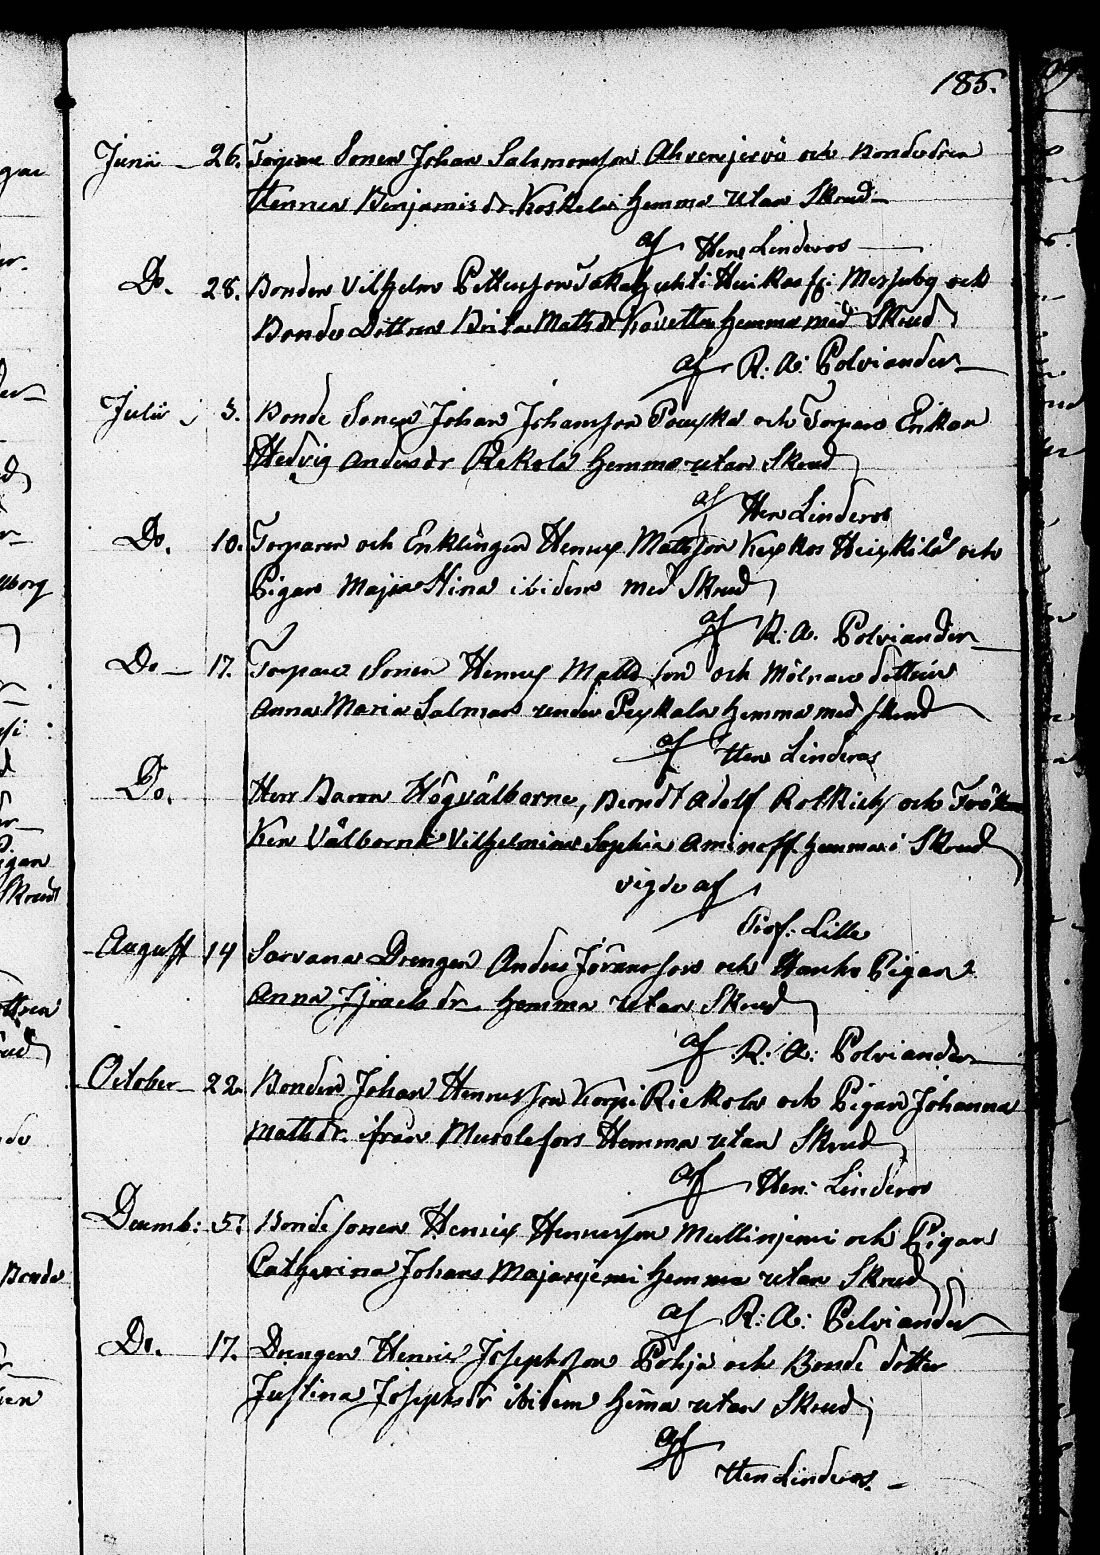 185.
Junii – 26. Torpare Sonen Johan Salomonsson Ahvenjervi och Bondedren
Henrica Benjamis dr. Koskela hemma utan Skrud
af Hen Linderos
Do. 28. Bonden Vilhelm Pettersson Huikas och
Bonde Dottren Brita Mats dr Kovetta hemma med Skrud
af R: A: Polviander
Julii 3. Bonde Sonen Johan Johansson Pouska och Torpare Enkan
Hedvig Anders dr Rekola hemma utan Skrud
af Hen Linderos
Do. 10. Torparen och Enklingen Henric Matsson Heickilä och
Pigan Maja Stina ibidem med Skrud
af R: A. Polviander
Do – 17. Torpare Sonen Henric Matts son och Mölnare dottren
Anna Maria Salmas under Peykala hemma med skrud
af Hen Linderos
Do. Herr Baron Högvälborne, Berndt Adolf Rotkirch och Frök
Ken Välborna Vilhelmina Sophia Aminoff hemma i Skrud
vigde af
Prof. Lille
August 14 Sarvana Drengen Anders Göransson och Hanho Pigan
Anna Israels dr hemma utan Skrud
af R: A: Polviander
October – 22. Bonden Johan Henricsson Korpi Riekola och Pigan Johanna
Mats dr. ifrån Muolefors Hemma utan Skrud
af Hen: Linderos
Decemb: 5. Bonde sonen Henric Henricsson Mullinjemi och Pigan
Catharina Johans Majaniemi hemma utan Skrud
af R: A: Polviander
Do. 17. Drengen Henric Josephsson Pohja och Bonde dotter
Justina Josephs dr ibidem hema utan Skrud
af
Hen Linderos.